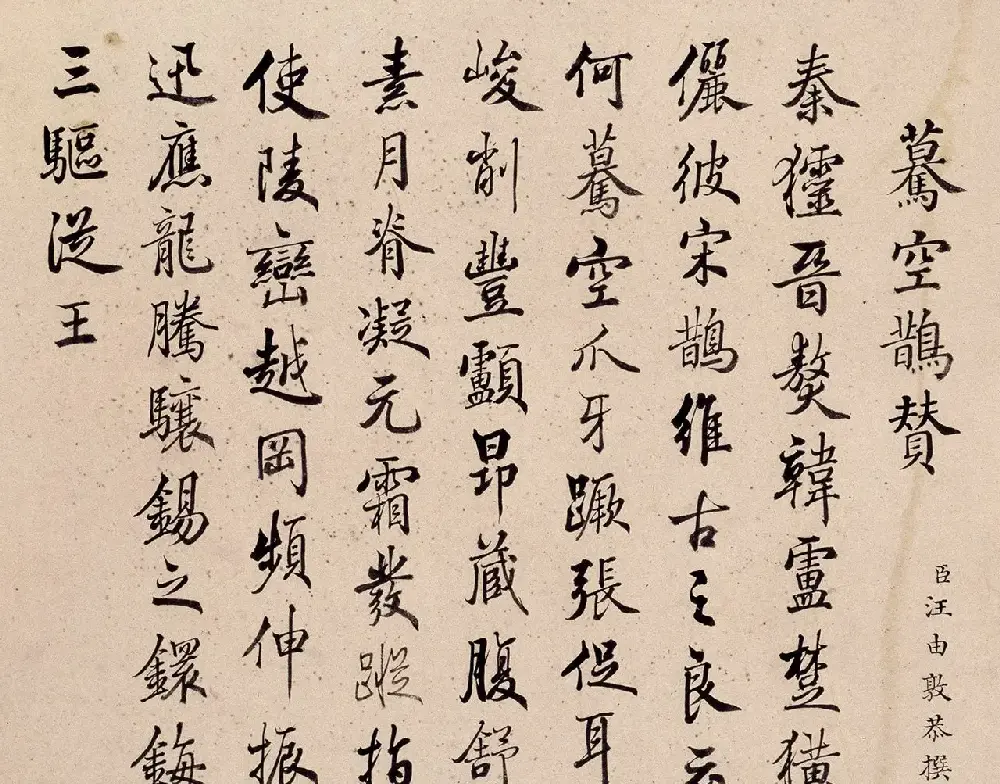 驀空鵲贊
臣汪由敦恭撰
秦晉獒韓盧楚獚
儷彼宋鵲維古之良云
何驀空爪牙蹶張促耳
峻削豐顱昂藏腹舒
素月脊凝元霜發蹤指
使陵巒越岡頻伸振
迅應龍騰驤錫之鐶鋂
三驅從王